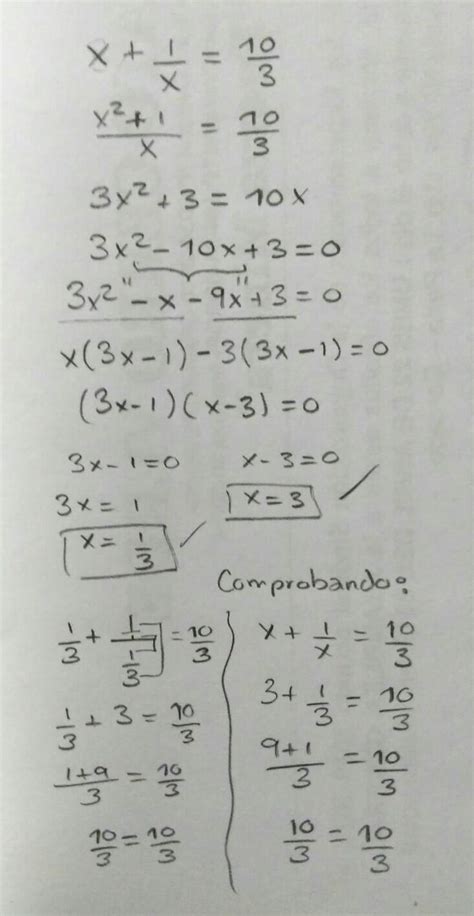 x + 1/x = 10/3
x² + 1 / x = 10/3
3x² + 3 = 10x
3x² - 10x + 3 = 0
3x² " - x - 9x " + 3 = 0
x(3x - 1) - 3(3x - 1) = 0
(3x - 1)(x - 3) = 0
3x - 1 = 0    x - 3 = 0
3x = 1    x = 3 ✓
x = 1/3 ✓
Comprobando:
1/3 + 1/(1/3) = 10/3
1/3 + 3 = 10/3
1+9 / 3 = 10/3
10/3 = 10/3
x + 1/x = 10/3
3 + 1/3 = 10/3
9+1 / 3 = 10/3
10/3 = 10/3